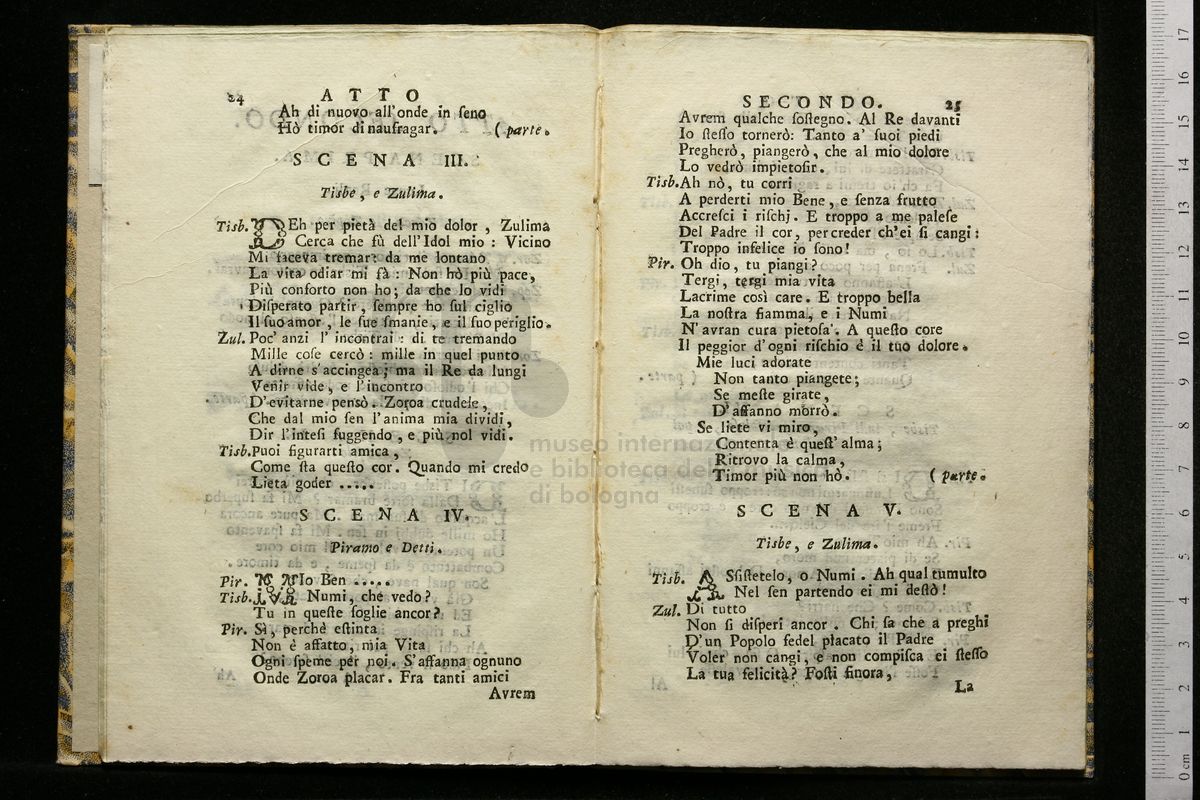 24 ATTO
Ah di nuovo all'onde in ſeno
Hò timor di naufragar. (parte.
SCENA III.
Tisbe, e Zulima.
Tisb. DEh per pietà del mio dolor, Zulima
Cerca che fù dell'Idol mio: Vicino
Mi faceva tremar: da me lontano
La vita odiar mi fà: Non hò più pace,
Più conforto non ho; da che lo vidi
Diſperato partir, ſempre ho ſul ciglio
Il ſuo amor, le ſue ſmanie, e il ſuo periglio.
Zul. Poc' anzi l' incontrai: di te tremando
Mille coſe cercò: mille in quel punto
A dirne s'accingea; ma il Re da lungi
Venir vide, e l'incontro
D'evitarne pensò. Zoroa crudele,
Che dal mio ſen l'anima mia dividi,
Dir l'inteſi fuggendo, e più nol vidi.
Tisb. Puoi figurarti amica,
Come ſta queſto cor. Quando mi credo
Lieta goder .....
SCENA IV.
Piramo e Detti.
Pir. MIo Ben .....
Tisb. Numi, che vedo?
Tu in queſte ſoglie ancor?
Pir. Sì, perchè eſtinta
Non è affatto, mia Vita
Ogni ſpeme per noi. S'affanna ognuno
Onde Zoroa placar. Fra tanti amici
Avrem
SECONDO. 25
Avrem qualche ſoſtegno. Al Re davanti
Io ſteſſo tornerò: Tanto a' ſuoi piedi
Pregherò, piangerò, che al mio dolore
Lo vedrò impietoſir.
Tisb. Ah nò, tu corri
A perderti mio Bene, e ſenza frutto
Accreſci i riſchj. E troppo a me paleſe
Del Padre il cor, per creder ch'ei ſi cangi:
Troppo infelice io ſono!
Pir. Oh dio, tu piangi?
Tergi, tergi mia vita
Lacrime così care. E troppo bella
La noſtra fiamma, e i Numi
N' avran cura pietoſa. A queſto core
Il peggior d'ogni riſchio è il tuo dolore.
Mie luci adorate
Non tanto piangete;
Se meſte girate,
D'affanno morrò.
Se liete vi miro,
Contenta è queſt' alma;
Ritrovo la calma,
Timor più non hò. (parte.
SCENA V.
Tisbe, e Zulima.
Tisb. ASſiſtetelo, o Numi. Ah qual tumulto
Nel ſen partendo ei mi deſtò!
Zul. Di tutto
Non ſi diſperi ancor. Chi ſa che a preghi
D'un Popolo fedel placato il Padre
Voler non cangi, e non compiſca ei ſteſſo
La tua felicità? Foſti finora,
La
museo internaz
e biblioteca del
di bologna
0 cm 1 2 3 4 5 6 7 8 9 10 11 12 13 14 15 16 17